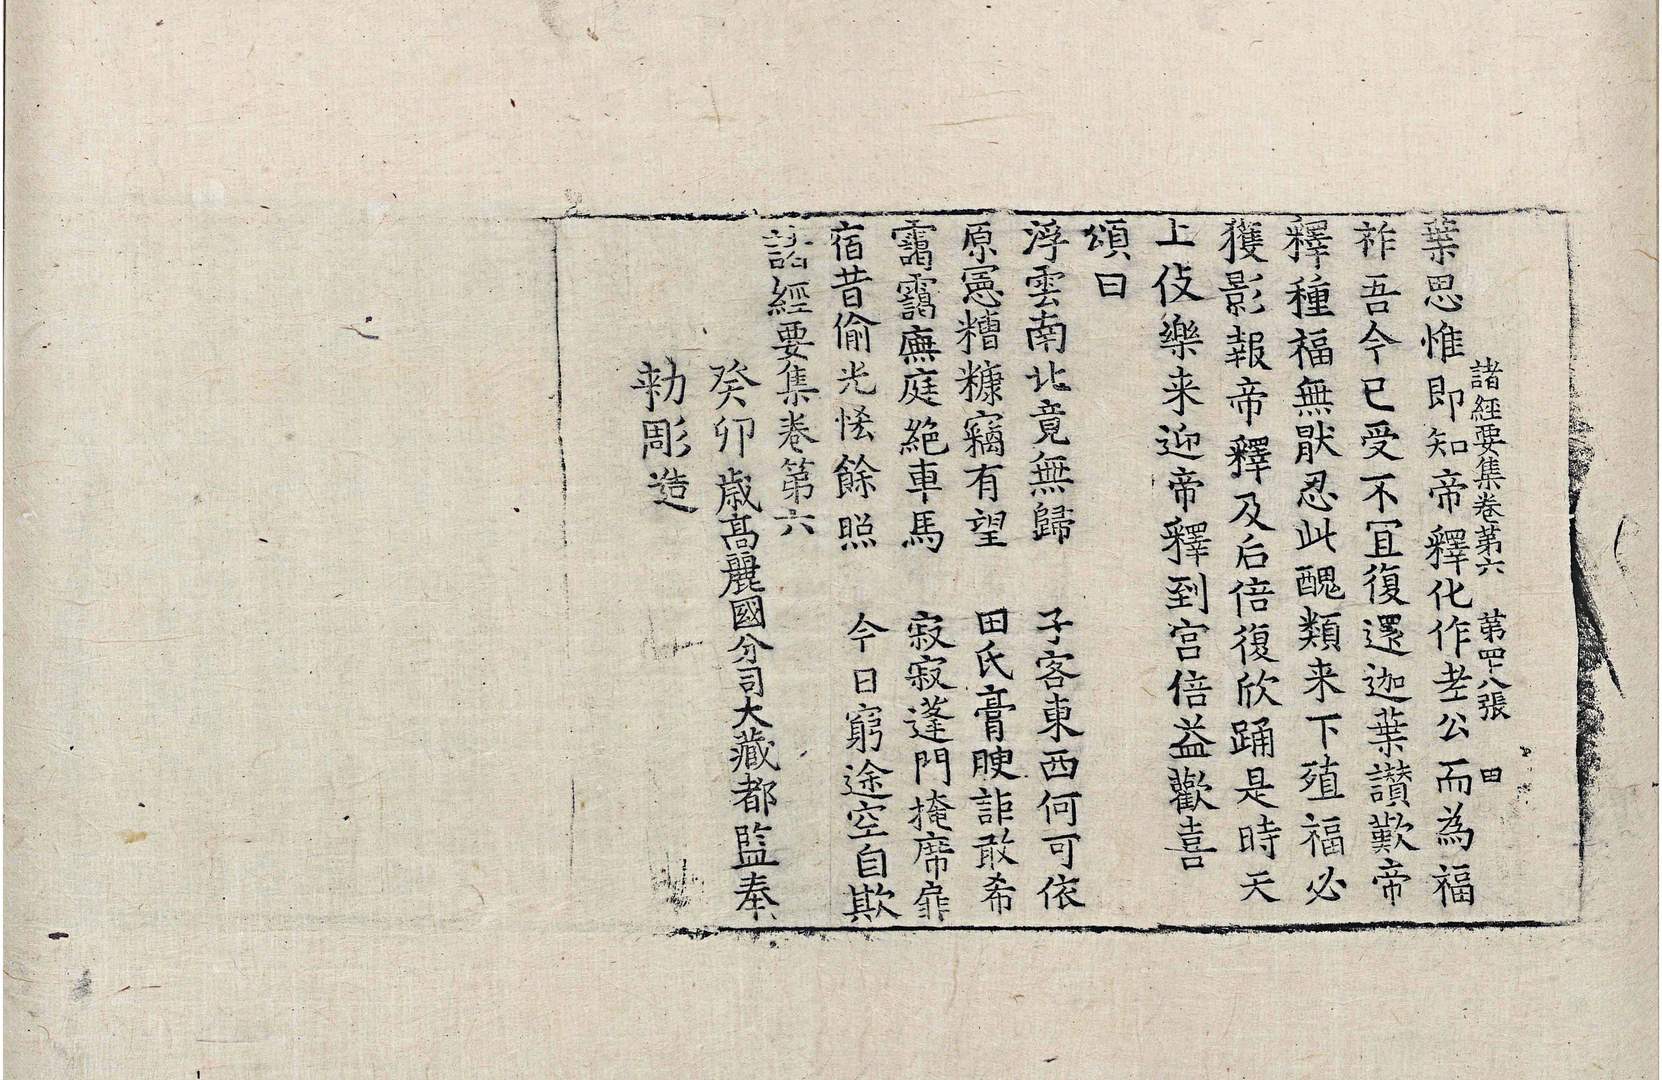 諸經要集卷第六　第四十八張　田
葉思惟即知帝釋化作老公而為福
祚吾今已受不冝復還迦葉讃歎帝
釋種福無猒忍此醜類来下殖福必
獲影報帝釋及后倍復欣踊是時天
上伎樂来迎帝釋到宫倍益歡喜
頌曰
浮雲南北竟無歸　子客東西何可依
原憲糟糠竊有望　田氏膏腴詎敢希
靄靄廡庭絶車馬　寂寂蓬門掩席扉
宿昔偷光恡餘照　今日窮途空自欺
諸經要集卷第六
癸卯歳髙麗國分司大藏都監奉
勑彫造